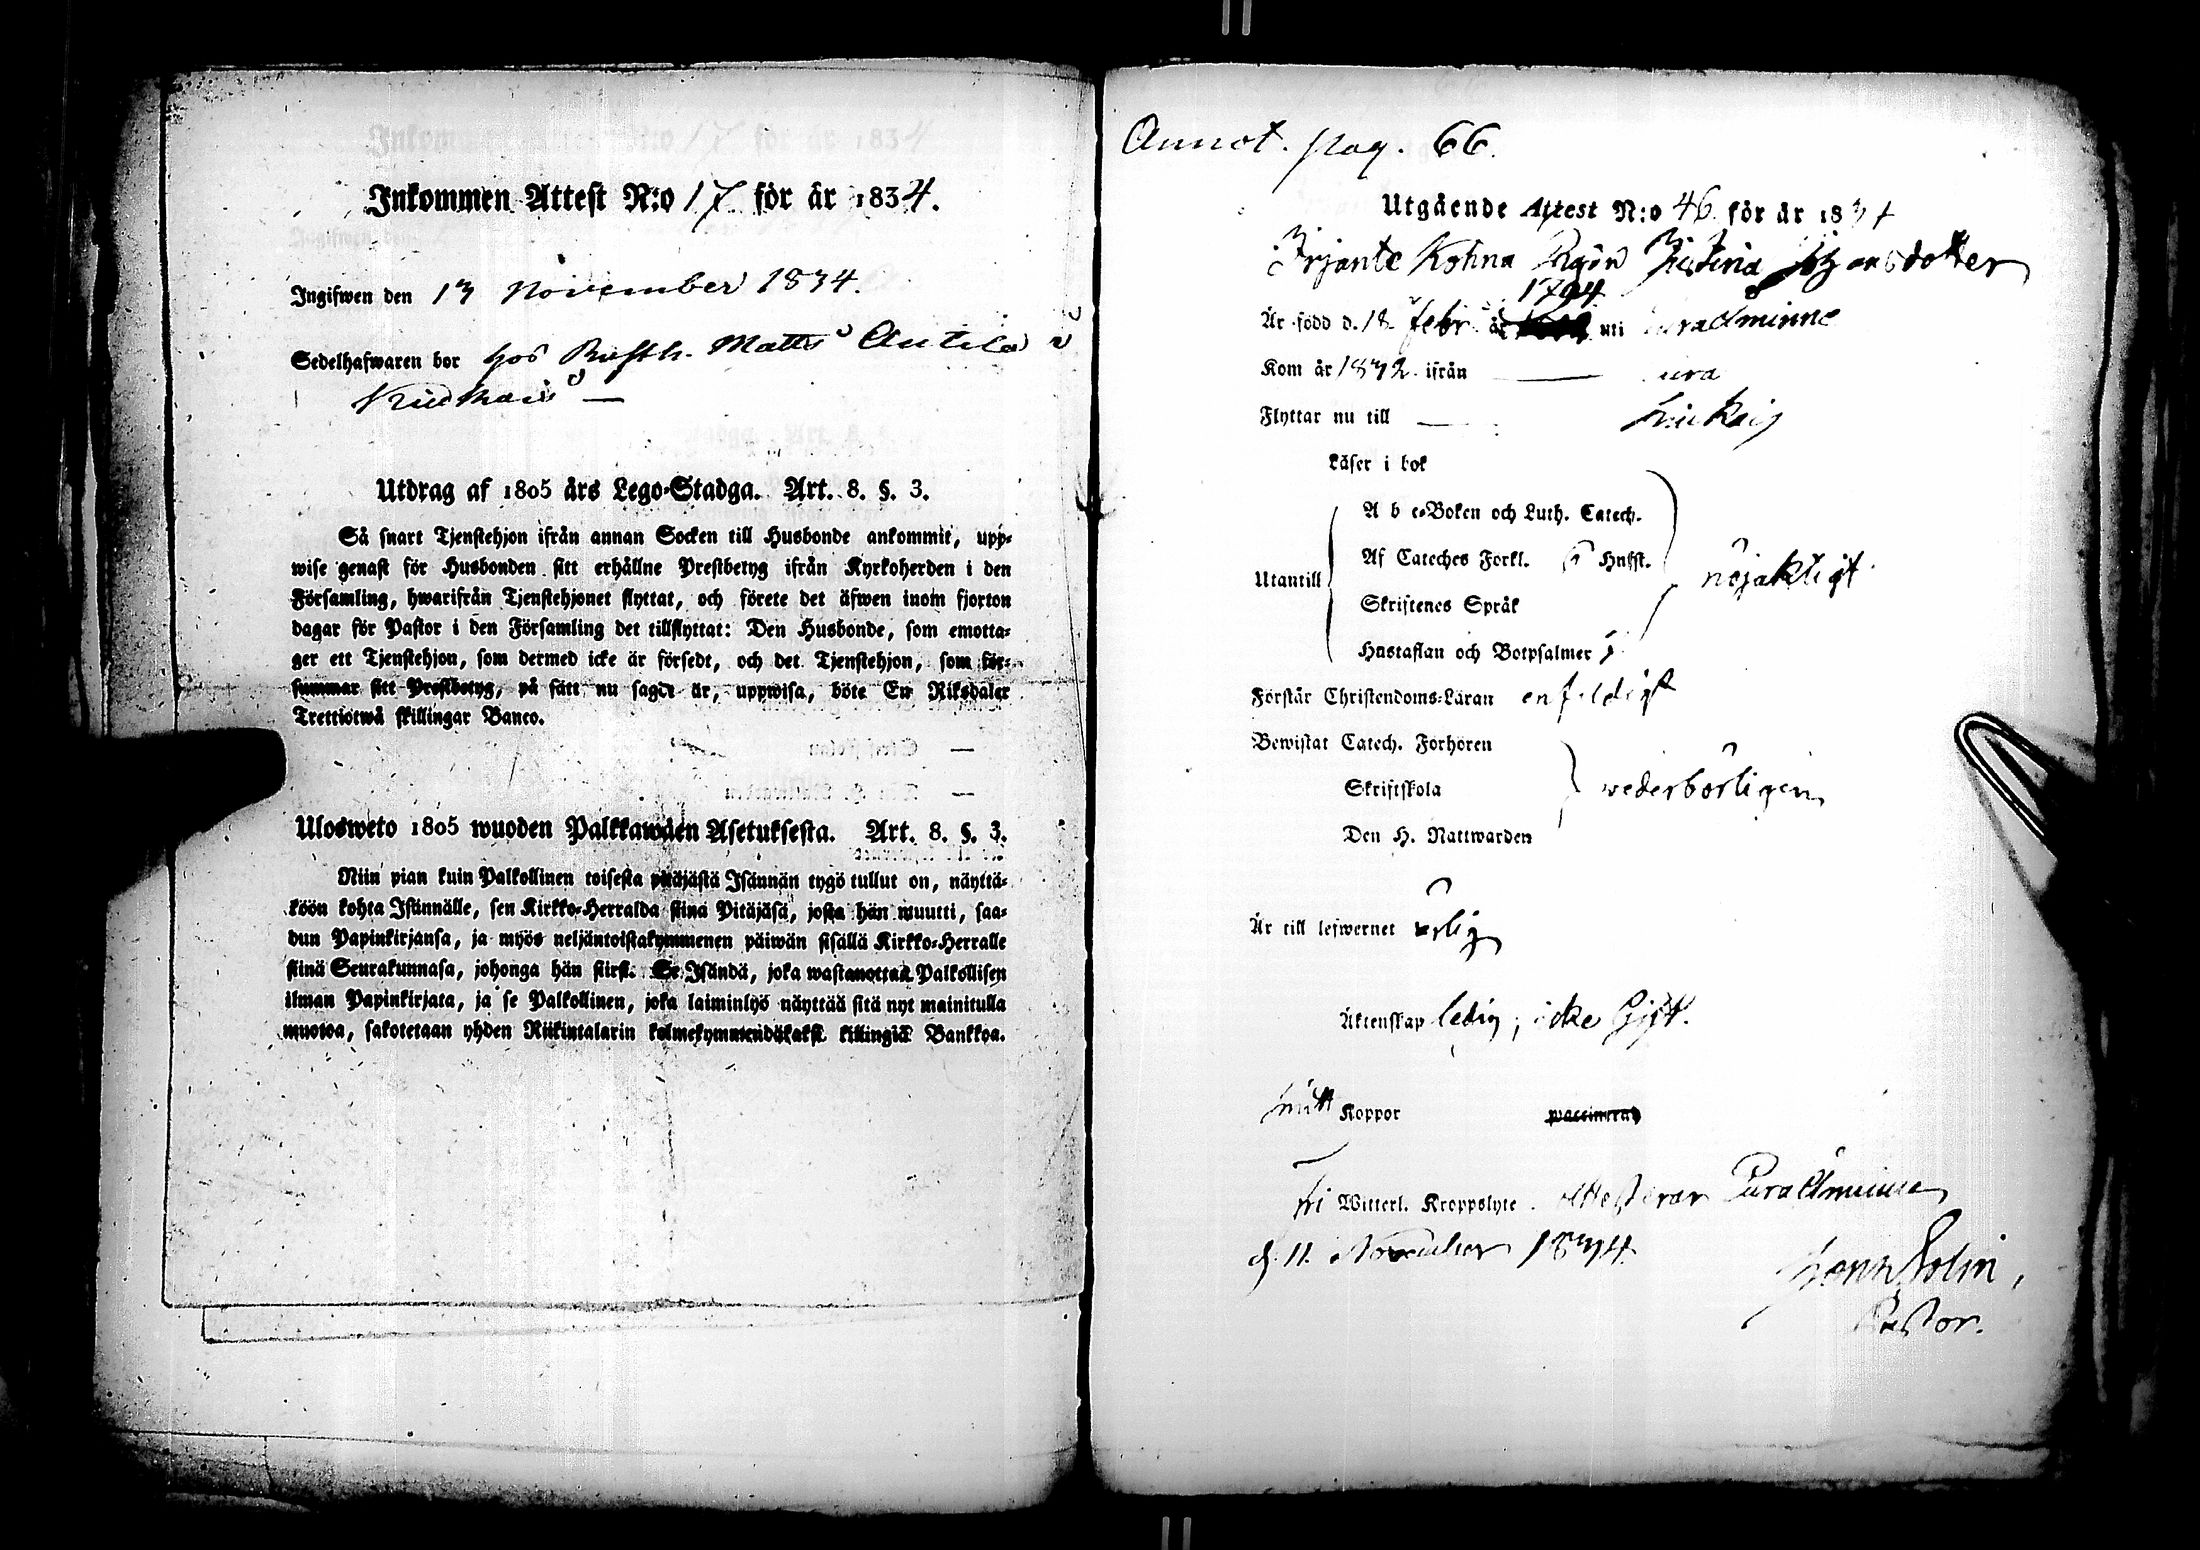 Inkommen Attest N:o 17 för år 1834.
Ingifwen den 13 November 1834.
Sedelhafwaren bor hos Rusth. Matts Antila i
Kiukais
Utdrag af 1805 års Lego-Stadga. Art. 8. §. 3.
Så snart Tjenstehjon ifrån annan Socken till Husbonde ankommit, upp-
wise genast för Husbonden sitt erhållne Prestbetyg ifrån Kyrkoherden i den
Församling, hwarifrån Tjenstehjonet flyttat, och förete det äfwen inom fjorton
dagar för Pastor i den Församling det tillflyttat: Den Husbonde, som emotta-
ger ett Tjenstehjon, som dermed icke är försedt, och det Tjenstehjon, som för-
summar sitt Prestbetyg, på sätt nu sagdt är, uppwisa, böte En Riksdaler
Trettiotwå skillingar Banco.
Ulosweto 1805 wuoden Palkkawäen Asetuksesta. Art. 8. §. 3.
Niin pian kuin Palkollinen toisesta pitäjästä Isännän tygö tullut on, näyttä-
köön kohta Isännälle, sen Kirkko-Herralda siinä Pitäjäsä, josta hän muutti, saa-
dun Papinkirjansa, ja myös neljäntoistakymmenen päiwän sisällä Kirkko-Herralle
siinä Seurakunnasa, johonga hän siirst. Se Isändä, joka wastanottaa Palkollisen
ilman Papinkirjata, ja se Palkollinen, joka laiminlyö näyttää sitä nyt mainitulla
muotoa, sakotetaan yhden Riikintalarin kolmekymmendäkaksi killingiä Bankkoa.
Annot. pag. 66.
Utgående Attest N:o 46 för år 1834
Kohna Pigan
Är född d. 18 febr. år 1794 uti Eura Åminne
Kom år 1832 ifrån — Eura
Flyttar nu till — Kiukais
Läser i bok
A b c-Boken och Luth. Catech.
Af Cateches Förkl. 5 Hufst.
Utantill
nöjaktigt
Skriftenes Språk
Hustaflan och Botpsalmer
Förstår Christendoms-Läran enfeldigt
Bewistat Catech. Förhören
Skriftskola
wederbörligen
Den H. Nattwarden
Är till lefwernet ärlig
Äktenskap ledig, icke Gift.
haft Koppor waccinerad
fri Witterl. Kroppslyte. attesterar Eura Åminne
d. 11. November 1834.
Pastor.